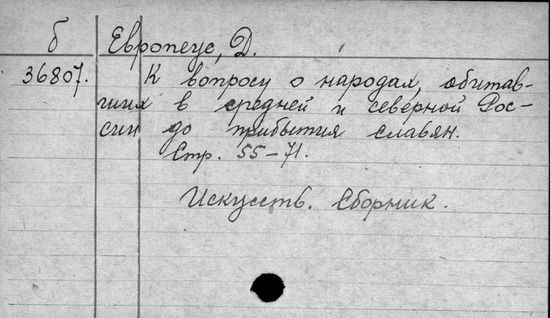 б Европеус, Д.
36807. К вопросу о народах, обитав-
ших в средней и северной Рос-
сии до прибытия славян.
Стр. 55-71.
Искусств. Сборник.